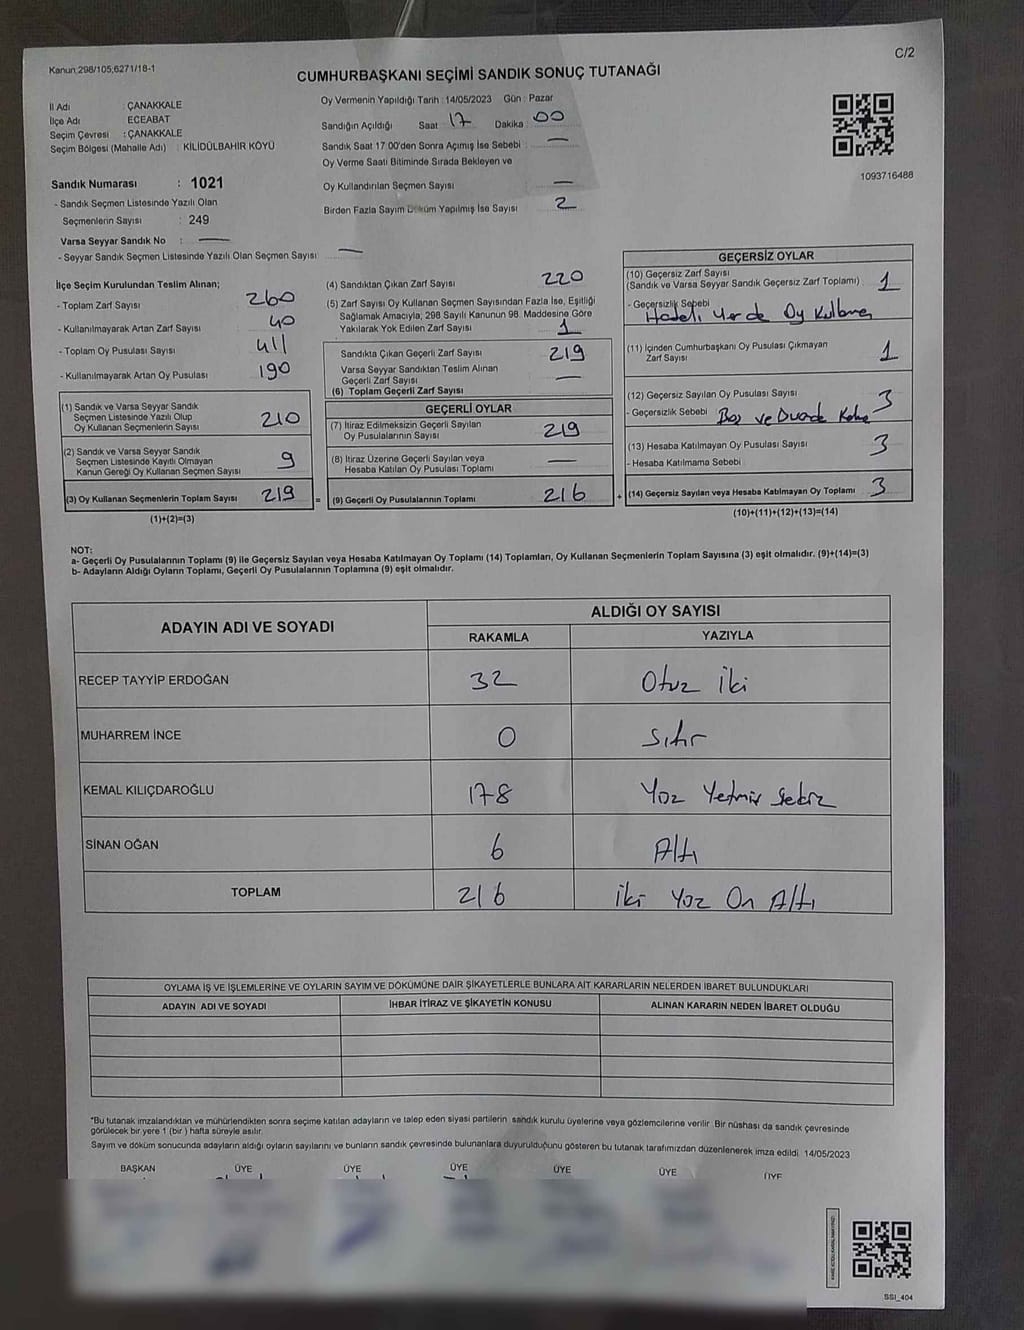 Kanun 298/105;6271/18-1
C/2
CUMHURBAŞKANI SEÇİMİ SANDIK SONUÇ TUTANAĞI
İl Adı : ÇANAKKALE
İlçe Adı ECEABAT
Seçim Çevresi : ÇANAKKALE
Seçim Bölgesi (Mahalle Adı) : KİLİDÜLBAHİR KÖYÜ
Oy Vermenin Yapıldığı Tarih : 14/05/2023 Gün : Pazar
Sandığın Açıldığı Saat 17 Dakika 00
Sandık Saat 17:00'den Sonra Açımış İse Sebebi : —
Oy Verme Saati Bitiminde Sırada Bekleyen ve
Oy Kullandırılan Seçmen Sayısı —
Birden Fazla Sayım Döküm Yapılmış İse Sayısı 2
1093716488
Sandık Numarası : 1021
- Sandık Seçmen Listesinde Yazılı Olan
Seçmenlerin Sayısı : 249
Varsa Seyyar Sandık No : —
- Seyyar Sandık Seçmen Listesinde Yazılı Olan Seçmen Sayısı: —
İlçe Seçim Kurulundan Teslim Alınan;
- Toplam Zarf Sayısı 260
- Kullanılmayarak Artan Zarf Sayısı 40
- Toplam Oy Pusulası Sayısı 411
- Kullanılmayarak Artan Oy Pusulası 190
(1) Sandık ve Varsa Seyyar Sandık
Seçmen Listesinde Yazılı Olup
Oy Kullanan Seçmenlerin Sayısı 210
(2) Sandık ve Varsa Seyyar Sandık
Seçmen Listesinde Kayıtlı Olmayan
Kanun Gereği Oy Kullanan Seçmen Sayısı 9
(3) Oy Kullanan Seçmenlerin Toplam Sayısı 219 =
(1)+(2)=(3)
(4) Sandıktan Çıkan Zarf Sayısı 220
(5) Zarf Sayısı Oy Kullanan Seçmen Sayısından Fazla İse, Eşitliği
Sağlamak Amacıyla; 298 Sayılı Kanunun 98. Maddesine Göre
Yakılarak Yok Edilen Zarf Sayısı 1
Sandıkta Çıkan Geçerli Zarf Sayısı 219
Varsa Seyyar Sandıktan Teslim Alınan
Geçerli Zarf Sayısı —
(6) Toplam Geçerli Zarf Sayısı
GEÇERLİ OYLAR
(7) İtiraz Edilmeksizin Geçerli Sayılan
Oy Pusulalarının Sayısı 219
(8) İtiraz Üzerine Geçerli Sayılan veya
Hesaba Katılan Oy Pusulası Toplamı —
(9) Geçerli Oy Pusulalarının Toplamı 216 +
GEÇERSİZ OYLAR
(10) Geçersiz Zarf Sayısı
(Sandık ve Varsa Seyyar Sandık Geçersiz Zarf Toplamı) 1
- Geçersizlik Sebebi
Hatalı Yerde Oy Kullanma
(11) İçinden Cumhurbaşkanı Oy Pusulası Çıkmayan
Zarf Sayısı 1
(12) Geçersiz Sayılan Oy Pusulası Sayısı 3
- Geçersizlik Sebebi Boş ve
(13) Hesaba Katılmayan Oy Pusulası Sayısı 3
- Hesaba Katılmama Sebebi
(14) Geçersiz Sayılan veya Hesaba Katılmayan Oy Toplamı 3
(10)+(11)+(12)+(13)=(14)
NOT:
a- Geçerli Oy Pusulalarının Toplamı (9) ile Geçersiz Sayılan veya Hesaba Katılmayan Oy Toplamı (14) Toplamları, Oy Kullanan Seçmenlerin Toplam Sayısına (3) eşit olmalıdır. (9)+(14)=(3)
b- Adayların Aldığı Oyların Toplamı, Geçerli Oy Pusulalarının Toplamına (9) eşit olmalıdır.
ADAYIN ADI VE SOYADI
ALDIĞI OY SAYISI
RAKAMLA YAZIYLA
RECEP TAYYİP ERDOĞAN 32 Otuz iki
MUHARREM İNCE 0 Sıfır
KEMAL KILIÇDAROĞLU 178 Yüz Yetmiş Sekiz
SİNAN OĞAN 6 Altı
TOPLAM 216 İki Yüz On Altı
OYLAMA İŞ VE İŞLEMLERİNE VE OYLARIN SAYIM VE DÖKÜMÜNE DAİR ŞİKAYETLERLE BUNLARA AİT KARARLARIN NELERDEN İBARET BULUNDUKLARI
ADAYIN ADI VE SOYADI İHBAR İTİRAZ VE ŞİKAYETİN KONUSU ALINAN KARARIN NEDEN İBARET OLDUĞU
*Bu tutanak imzalandıktan ve mühürlendikten sonra seçime katılan adayların ve talep eden siyasi partilerin sandık kurulu üyelerine veya gözlemcilerine verilir. Bir nüshası da sandık çevresinde
görülecek bir yere 1 (bir ) hafta süreyle asılır.
Sayım ve döküm sonucunda adayların aldığı oyların sayılarını ve bunların sandık çevresinde bulunanlara duyurulduğunu gösteren bu tutanak tarafımızdan düzenlenerek imza edildi. 14/05/2023
BAŞKAN ÜYE ÜYE ÜYE ÜYE ÜYE ÜYE
SSI_404